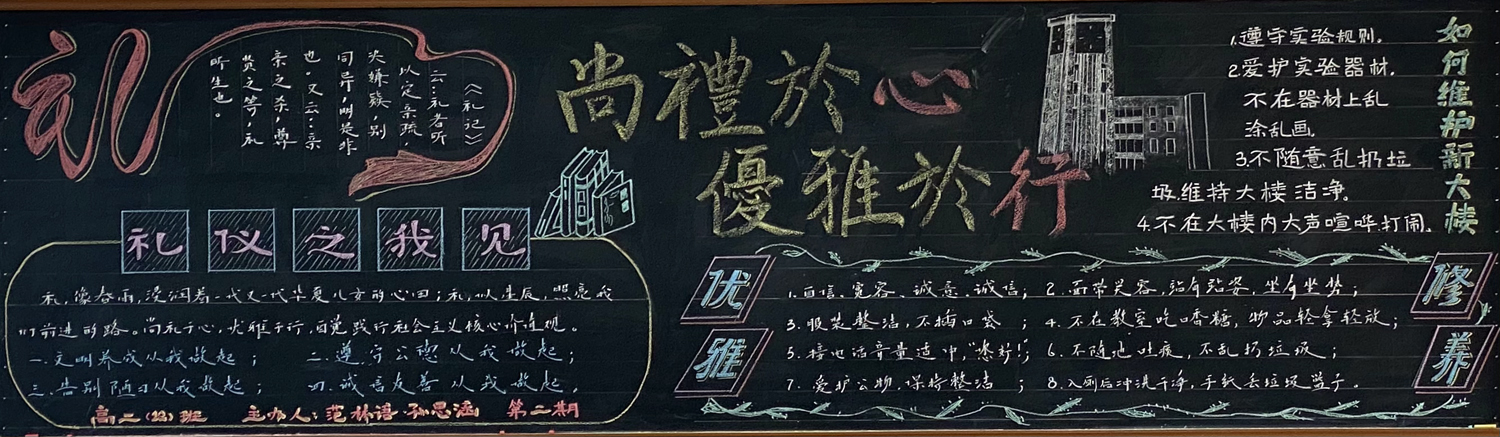 礼
《礼记》
云:礼者所
以定亲疏,
决嫌疑,别
同异,明是非
也。又云:亲
亲之杀,尊
贤之等,礼
所生也。
尚禮於心
優雅於行
礼仪之我见
礼,像春雨,浸润着一代又一代华夏儿女的心田;礼,似星辰,照亮我
们前进的路。尚礼于心,优雅于行,自觉践行社会主义核心价值观。
一.文明养成从我做起; 二.遵守公德从我做起;
三.告别陋习从我做起; 四.诚信友善从我做起。
高二(22)班 主办人:范林语 孙思涵 第二期
如何维护新大楼
1.遵守实验规则。
2.爱护实验器材,
不在器材上乱
涂乱画。
3.不随意乱扔垃
圾,维持大楼洁净。
4.不在大楼内大声喧哗、打闹。
优雅
修养
1.自信、宽容、诚意、诚信; 2.面带笑容,站有站姿,坐有坐势;
3.服装整洁,不插口袋; 4.不在教室吃口香糖,物品轻拿轻放;
5.接电话音量适中,"您好!"; 6.不随地吐痰,不乱扔垃圾;
7.爱护公物,保持整洁; 8.入厕后冲洗干净,手纸丢垃圾篓子。